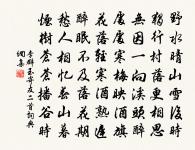 野水晴山雪後時
獨行村落更相思
無因一向溪頭醉
處處寒梅映酒旗
花落輕寒酒熟遲
醉眠不及落花期
愁人相憶春山暮
煙樹蒼蒼播谷時
李群玉寄友二首詞典
網集